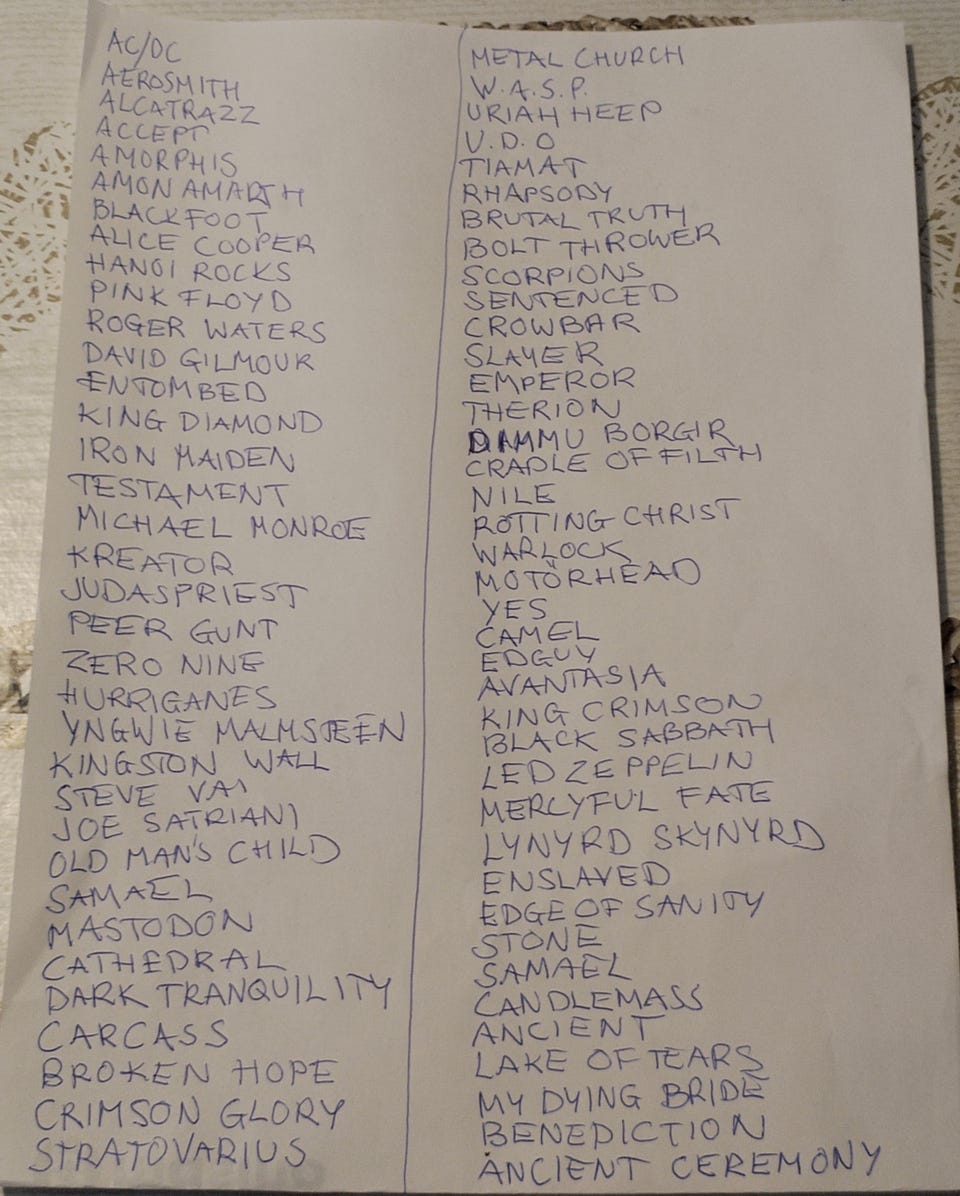 AC/DC
AEROSMITH
ALCATRAZZ
ACCEPT
AMORPHIS
AMON AMARTH
BLACKFOOT
ALICE COOPER
HANOI ROCKS
PINK FLOYD
ROGER WATERS
DAVID GILMOUR
ENTOMBED
KING DIAMOND
IRON MAIDEN
TESTAMENT
MICHAEL MONROE
KREATOR
JUDASPRIEST
PEER GUNT
ZERO NINE
HURRIGANES
YNGWIE MALMSTEEN
KINGSTON WALL
STEVE VAI
JOE SATRIANI
OLD MAN'S CHILD
SAMAEL
MASTODON
CATHEDRAL
DARK TRANQUILITY
CARCASS
BROKEN HOPE
CRIMSON GLORY
STRATOVARIUS
METAL CHURCH
W.A.S.P.
URIAH HEEP
U.D.O
TIAMAT
RHAPSODY
BRUTAL TRUTH
BOLT THROWER
SCORPIONS
SENTENCED
CROWBAR
SLAYER
EMPEROR
THERION
DIMMU BORGIR
CRADLE OF FILTH
NILE
ROTTING CHRIST
WARLOCK
MOTÖRHEAD
YES
CAMEL
EDGUY
AVANTASIA
KING CRIMSON
BLACK SABBATH
LED ZEPPELIN
MERCYFUL FATE
LYNYRD SKYNYRD
ENSLAVED
EDGE OF SANITY
STONE
SAMAEL
CANDLEMASS
ANCIENT
LAKE OF TEARS
MY DYING BRIDE
BENEDICTION
ANCIENT CEREMONY